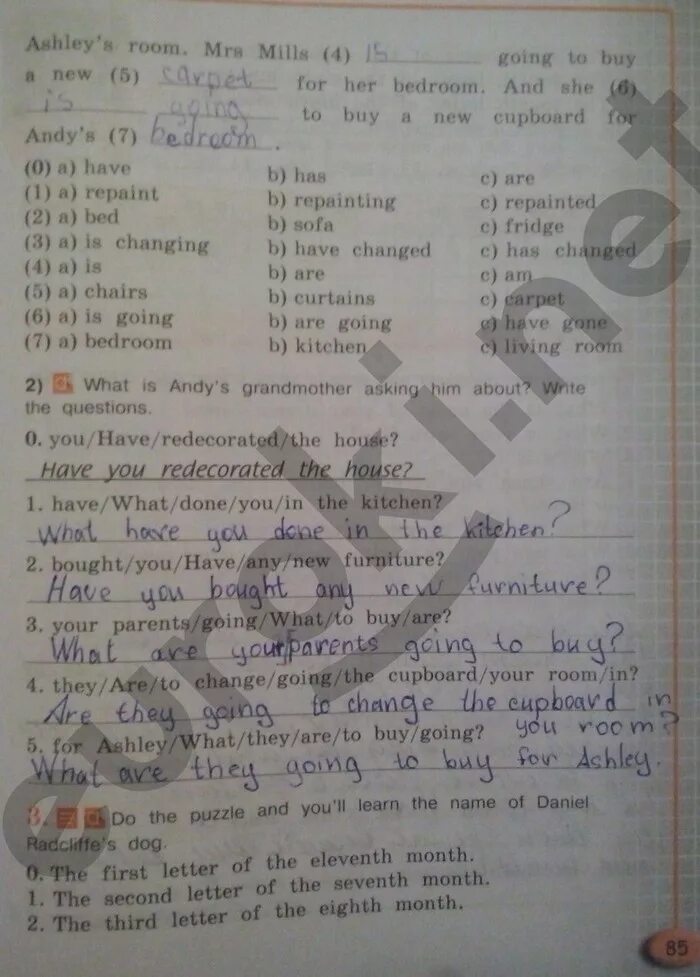 Ashley's room. Mrs Mills (4) is going to buy
a new (5) carpet for her bedroom. And she (6)
is going to buy a new cupboard for
Andy's (7) bedroom.
(0) a) have b) has c) are
(1) a) repaint b) repainting c) repainted
(2) a) bed b) sofa c) fridge
(3) a) is changing b) have changed c) has changed
(4) a) is b) are c) am
(5) a) chairs b) curtains c) carpet
(6) a) is going b) are going c) have gone
(7) a) bedroom b) kitchen c) living room
2) What is Andy's grandmother asking him about? Write
the questions.
0. you/Have/redecorated/the house?
Have you redecorated the house?
1. have/What/done/you/in the kitchen?
What have you done in the kitchen?
2. bought/you/Have/any/new furniture?
Have you bought any new furniture?
3. your parents/going/What/to buy/are?
What are your parents going to buy?
4. they/Are/to change/going/the cupboard/your room/in?
Are they going to change the cupboard in
you room?
5. for Ashley/What/they/are/to buy/going?
What are they going to buy for Ashley.
3. Do the puzzle and you'll learn the name of Daniel
Radcliffe's dog.
0. The first letter of the eleventh month.
1. The second letter of the seventh month.
2. The third letter of the eighth month.
85
euroki.net